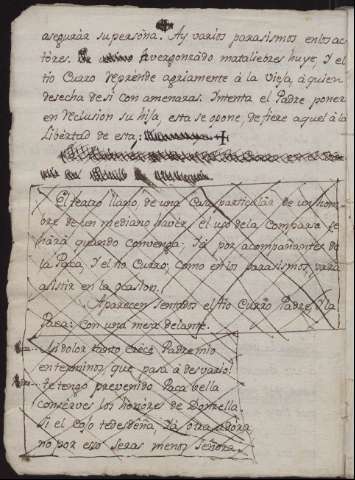 asegurár su persóna. Ay varios parasismos en los ac
tóres. Avergonzado mataliebres huye, Y el
tio Curro reprende agriamente à la vieja, à quien
desecha de sí con amenazas. Intenta el Padre poner
en reclusion su hija, esta se opone, defiere aquel à la
libertad de esta;
El teatro llano, de una Casa particular de un hom
bre de un mediano havér. El de la Comparsa se
hará quando convenga, Ya por acompañantes de
la Paca, Y el tio Curro, como en los parasismos, para
asistir en la ocasion.
Aparecen sentados el tio Curro Padre, Y la
Paca: con una mesa delante.
Si dolor tanto crece Padre mio
en terminos que pasa à desvario!
te tengo prevenido Paca bella
conserves los honóres de Donzella
si el Cojo te desdeña, Ya otra adora
no por eso seras menos señora.